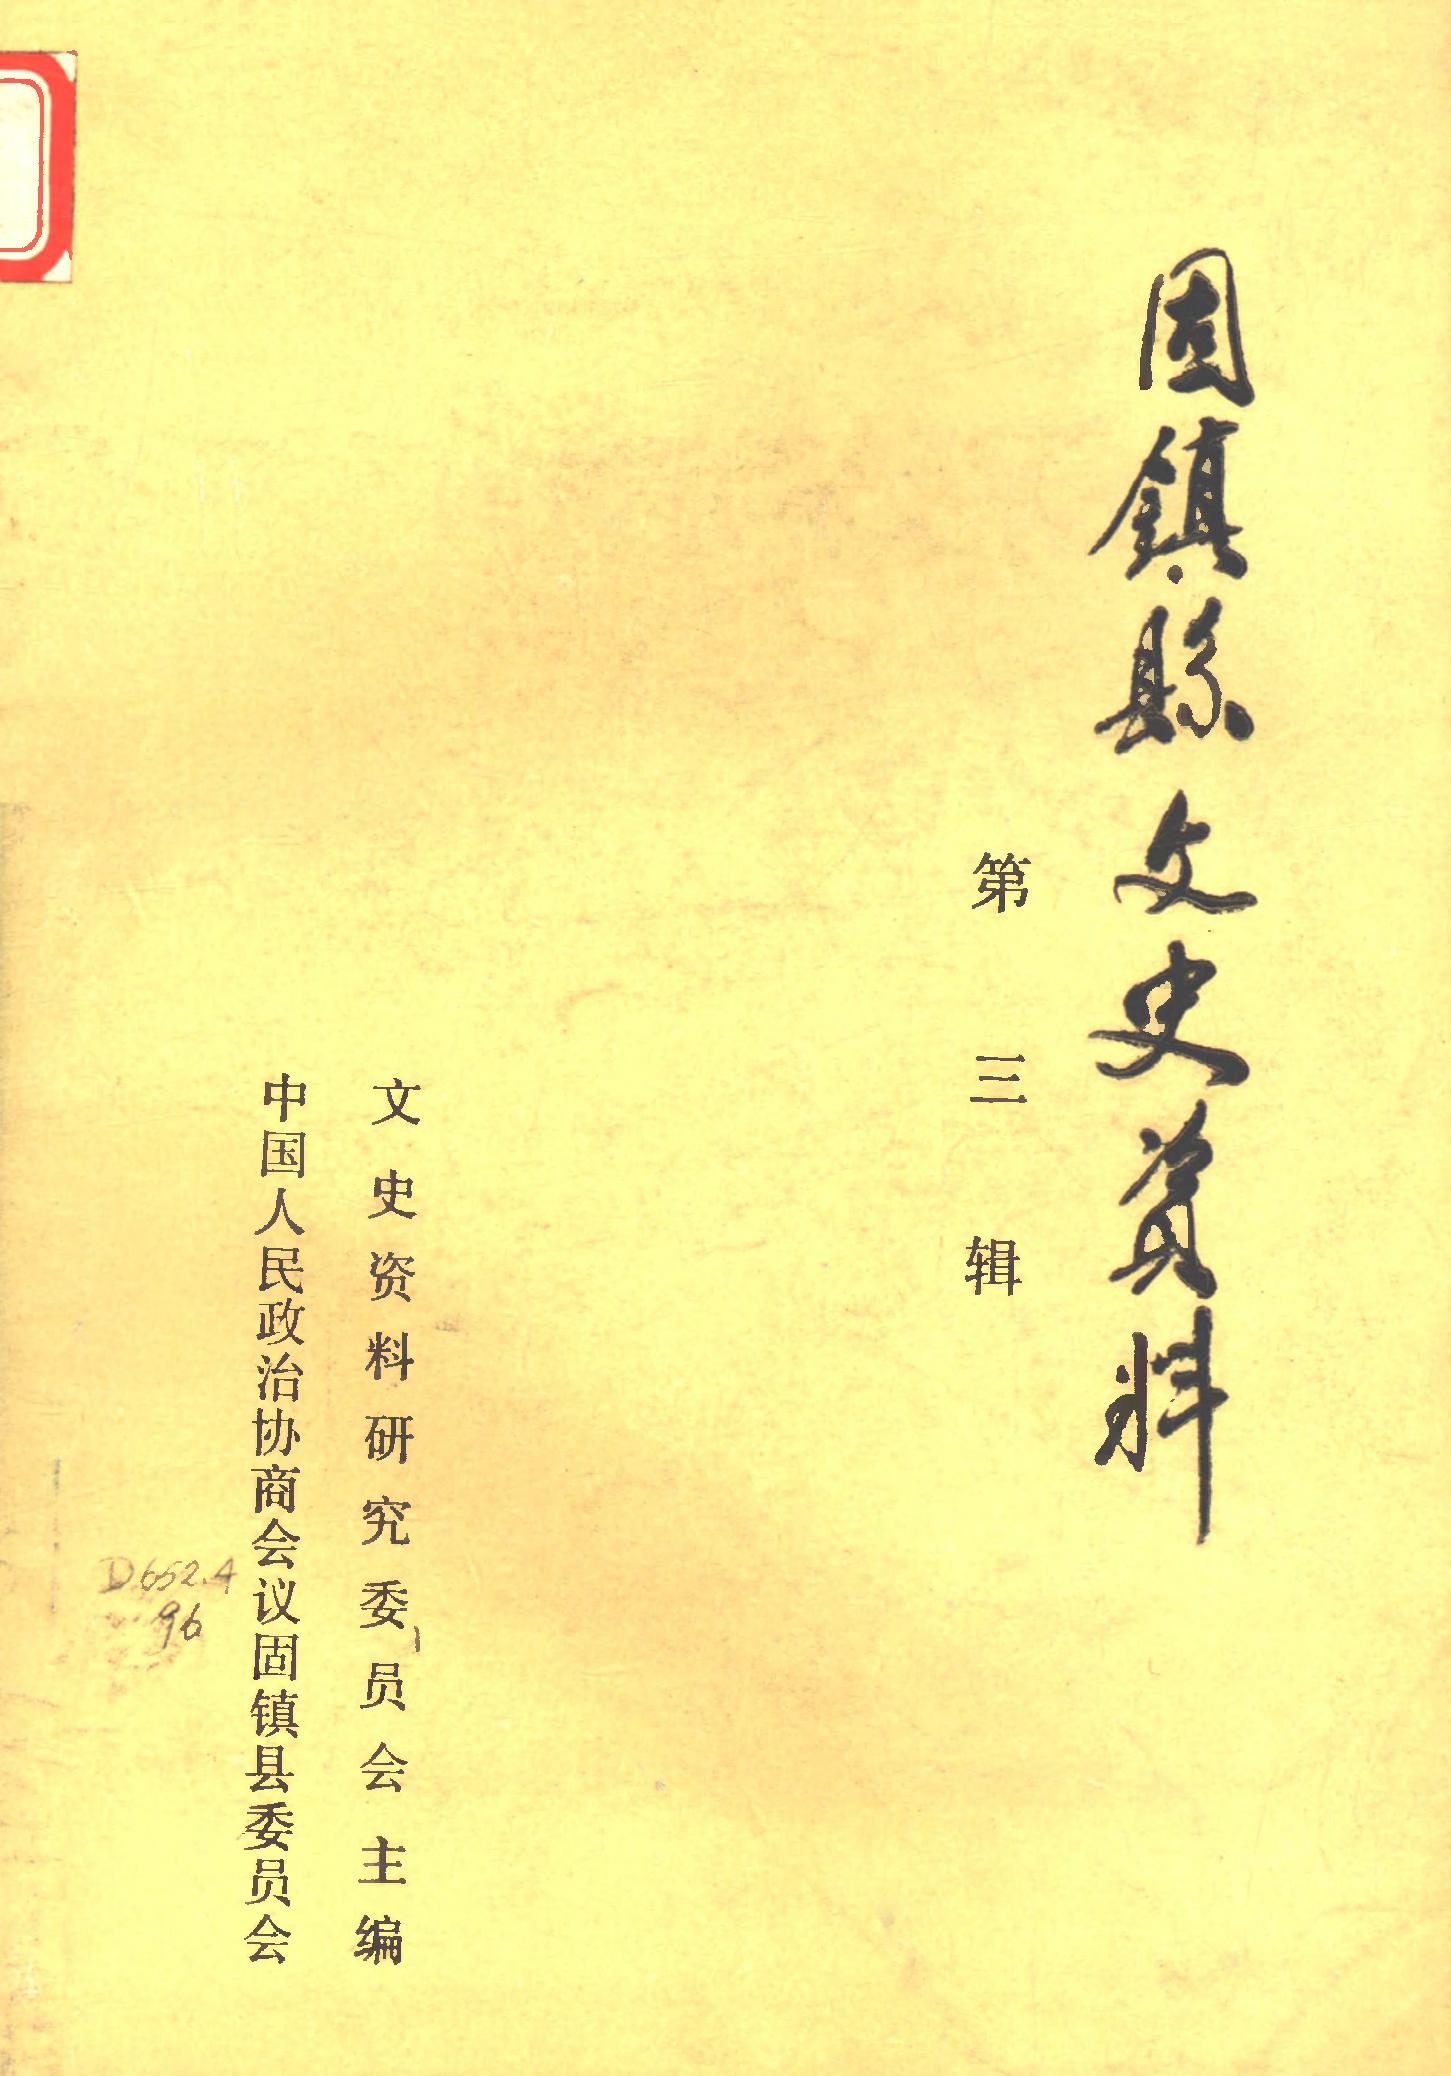 固鎮縣文史資料
第三辑
文史资料研究委员会主编
中国人民政治协商会议固镇县委员会
D652.4
96